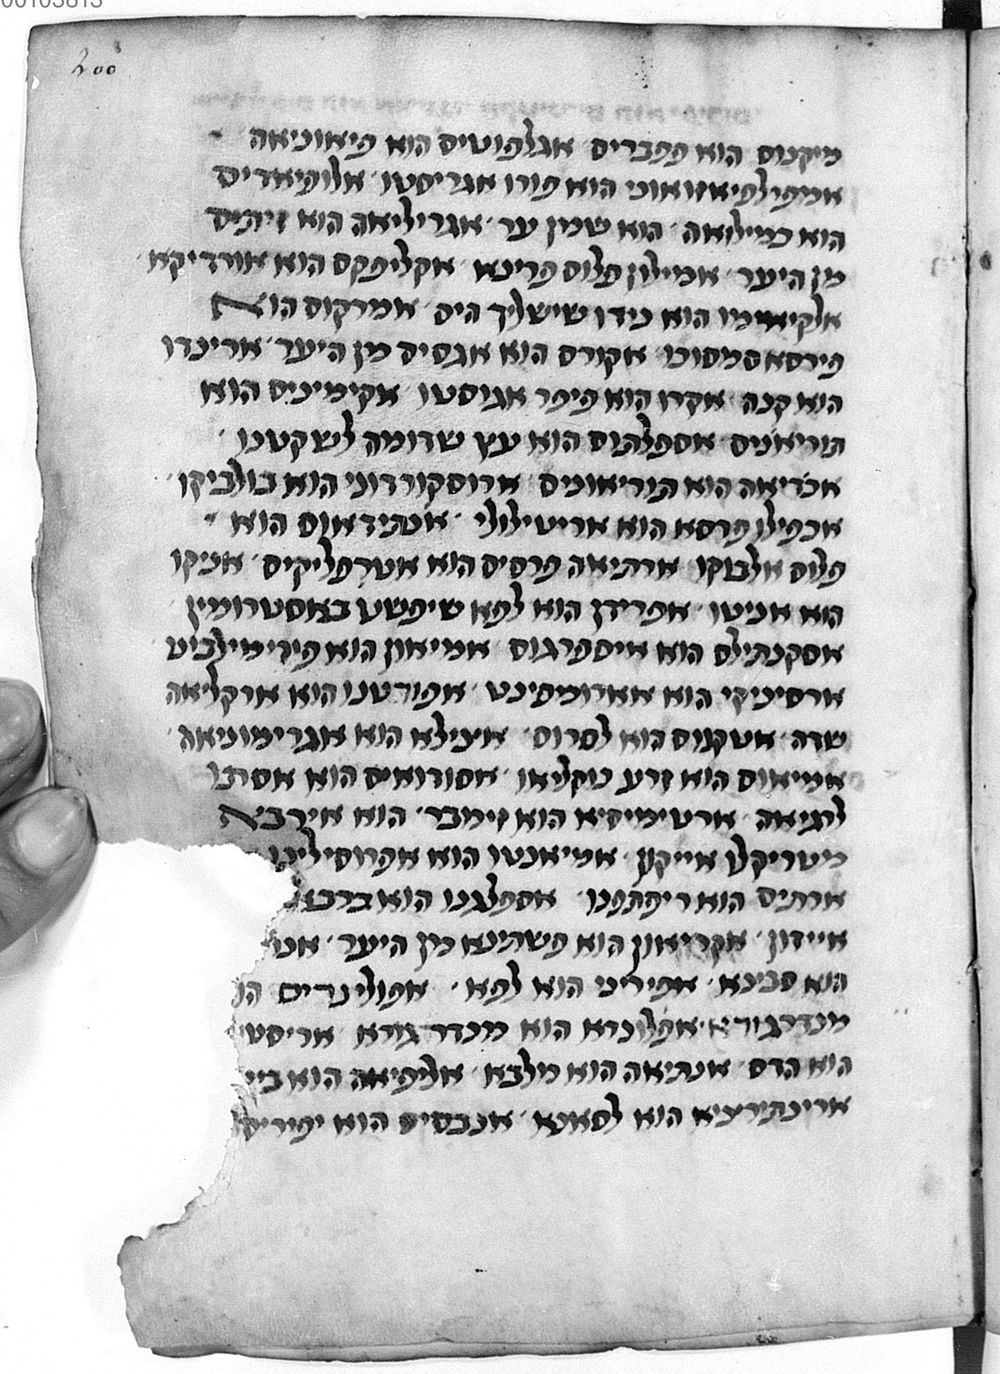 00103813
200
מיקנוס הוא פפבריס אגלפוטיס הוא פיאוניאה
אמפילפיאזואוני הוא פורו אגריסטו אלופיאדיס
הוא כמיילואה הוא שמן ער אגריליאה הוא זיתים
מן היער אמילון פלוס פרינא אקליפקס הוא אורדיקא
אלקיאוימו הוא כידו שישליך הים אמרקוס הוא
פירסא סמסוכו אקורס הוא אגסים מן היער ארינדו
הוא קנה אקרו הוא פיפר אגוסטו אקימינים הוא
תוריאונים אספלתוס הוא עץ שדומה לשקטנו
אכריאה הוא תוריאונים ארוסקורדוני הוא בולביקו
אכפילו פרסא הוא אריטילולי אנתידאוס הוא
פלוס אלבוקו ארתיאה פרסיס הוא אטרפליקיס אניקו
הוא אניטו אפרידן הוא לפא שיפשט באוסטרומין
אסקנתילס הוא איספרגוס אמיאון הוא פירימילביט
ארסיניקי הוא אאורומפיגט אפורטנו הוא ארקליאה
שדה אטקנוס הוא לסרוס איצילא הוא אגרימוניאה
אמיאוס הוא זרע טקליאו אסורואים הוא אסתרו
לתגיאה ארטימיסיא הוא זימבר הוא אירבא
מטריקלו אייקון אמיאנטו הוא אפרוסילינו
ארתיס הוא ריפתפנו אספלגנו הוא ברבא
איידון אקריאון הוא פשתינא מן היער אט
הוא סבינא אפירינו הוא לפא אפולינריס הו
מנדרגורא אפלונרא הוא מנדרגורא אריסטי
הוא הדס אנתיאה הוא מלבא אליפיאה הוא ביי
ארינתירציא הוא לסאנא אנבסיס הוא יפוריס